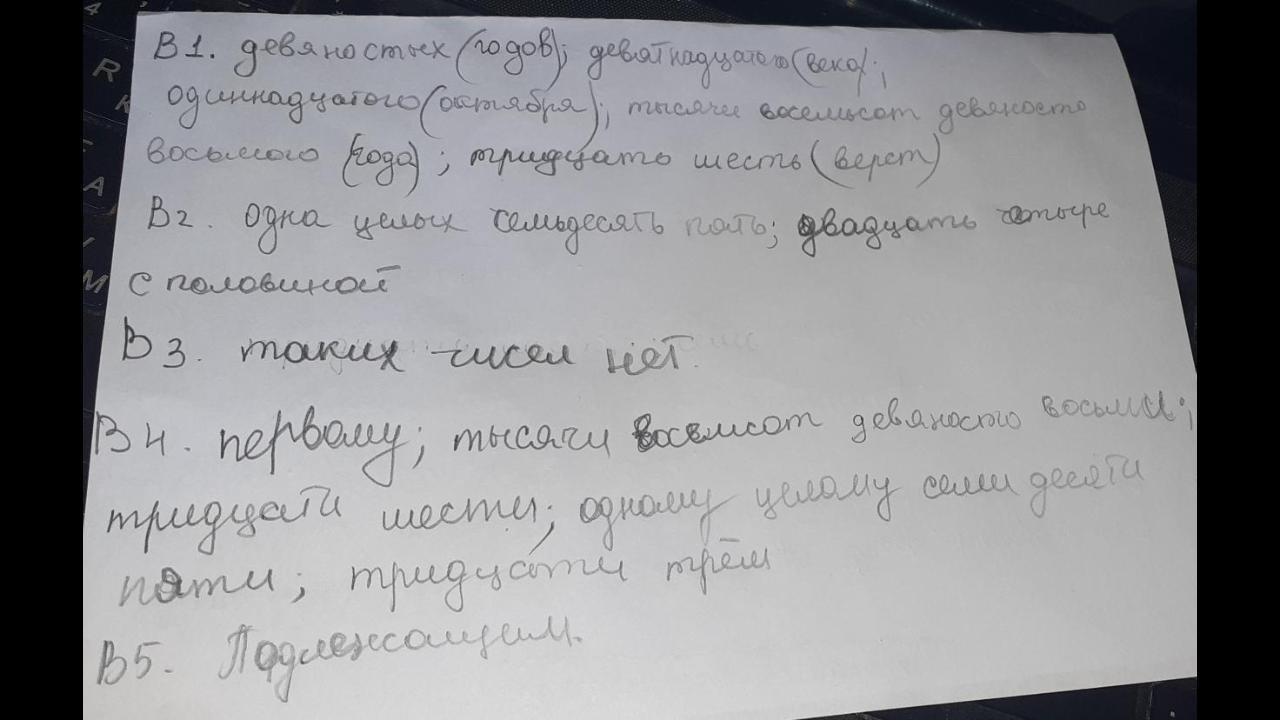 В1. девяностых (годов); девятнадцатого (века);
одиннадцатого (октября); тысячи восемьсот девяносто
восьмого (года); тридцать шесть (верст)
В2. одна целых семьдесять пять; двадцать четыре
с половиной
В3. таких чисел нет.
В4. первому; тысячи восемсот девяносто восьми;
тридцати шести; одному целому семи десяти
пяти; тридцати трём
В5. Подлежащим.